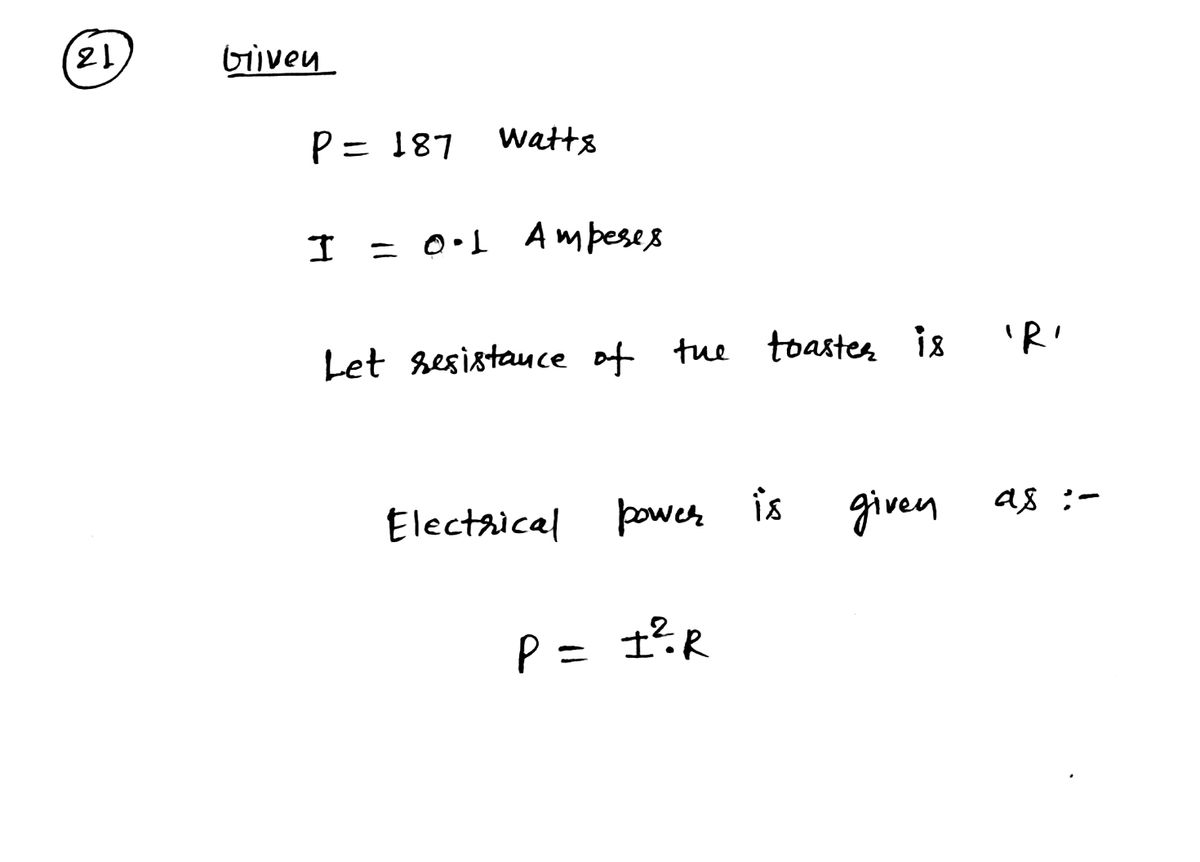 21 Given
P = 187 Watts
I = 0.1 Amperes
Let resistance of the toaster is 'R'
Electrical power is given as :-
P = I².R